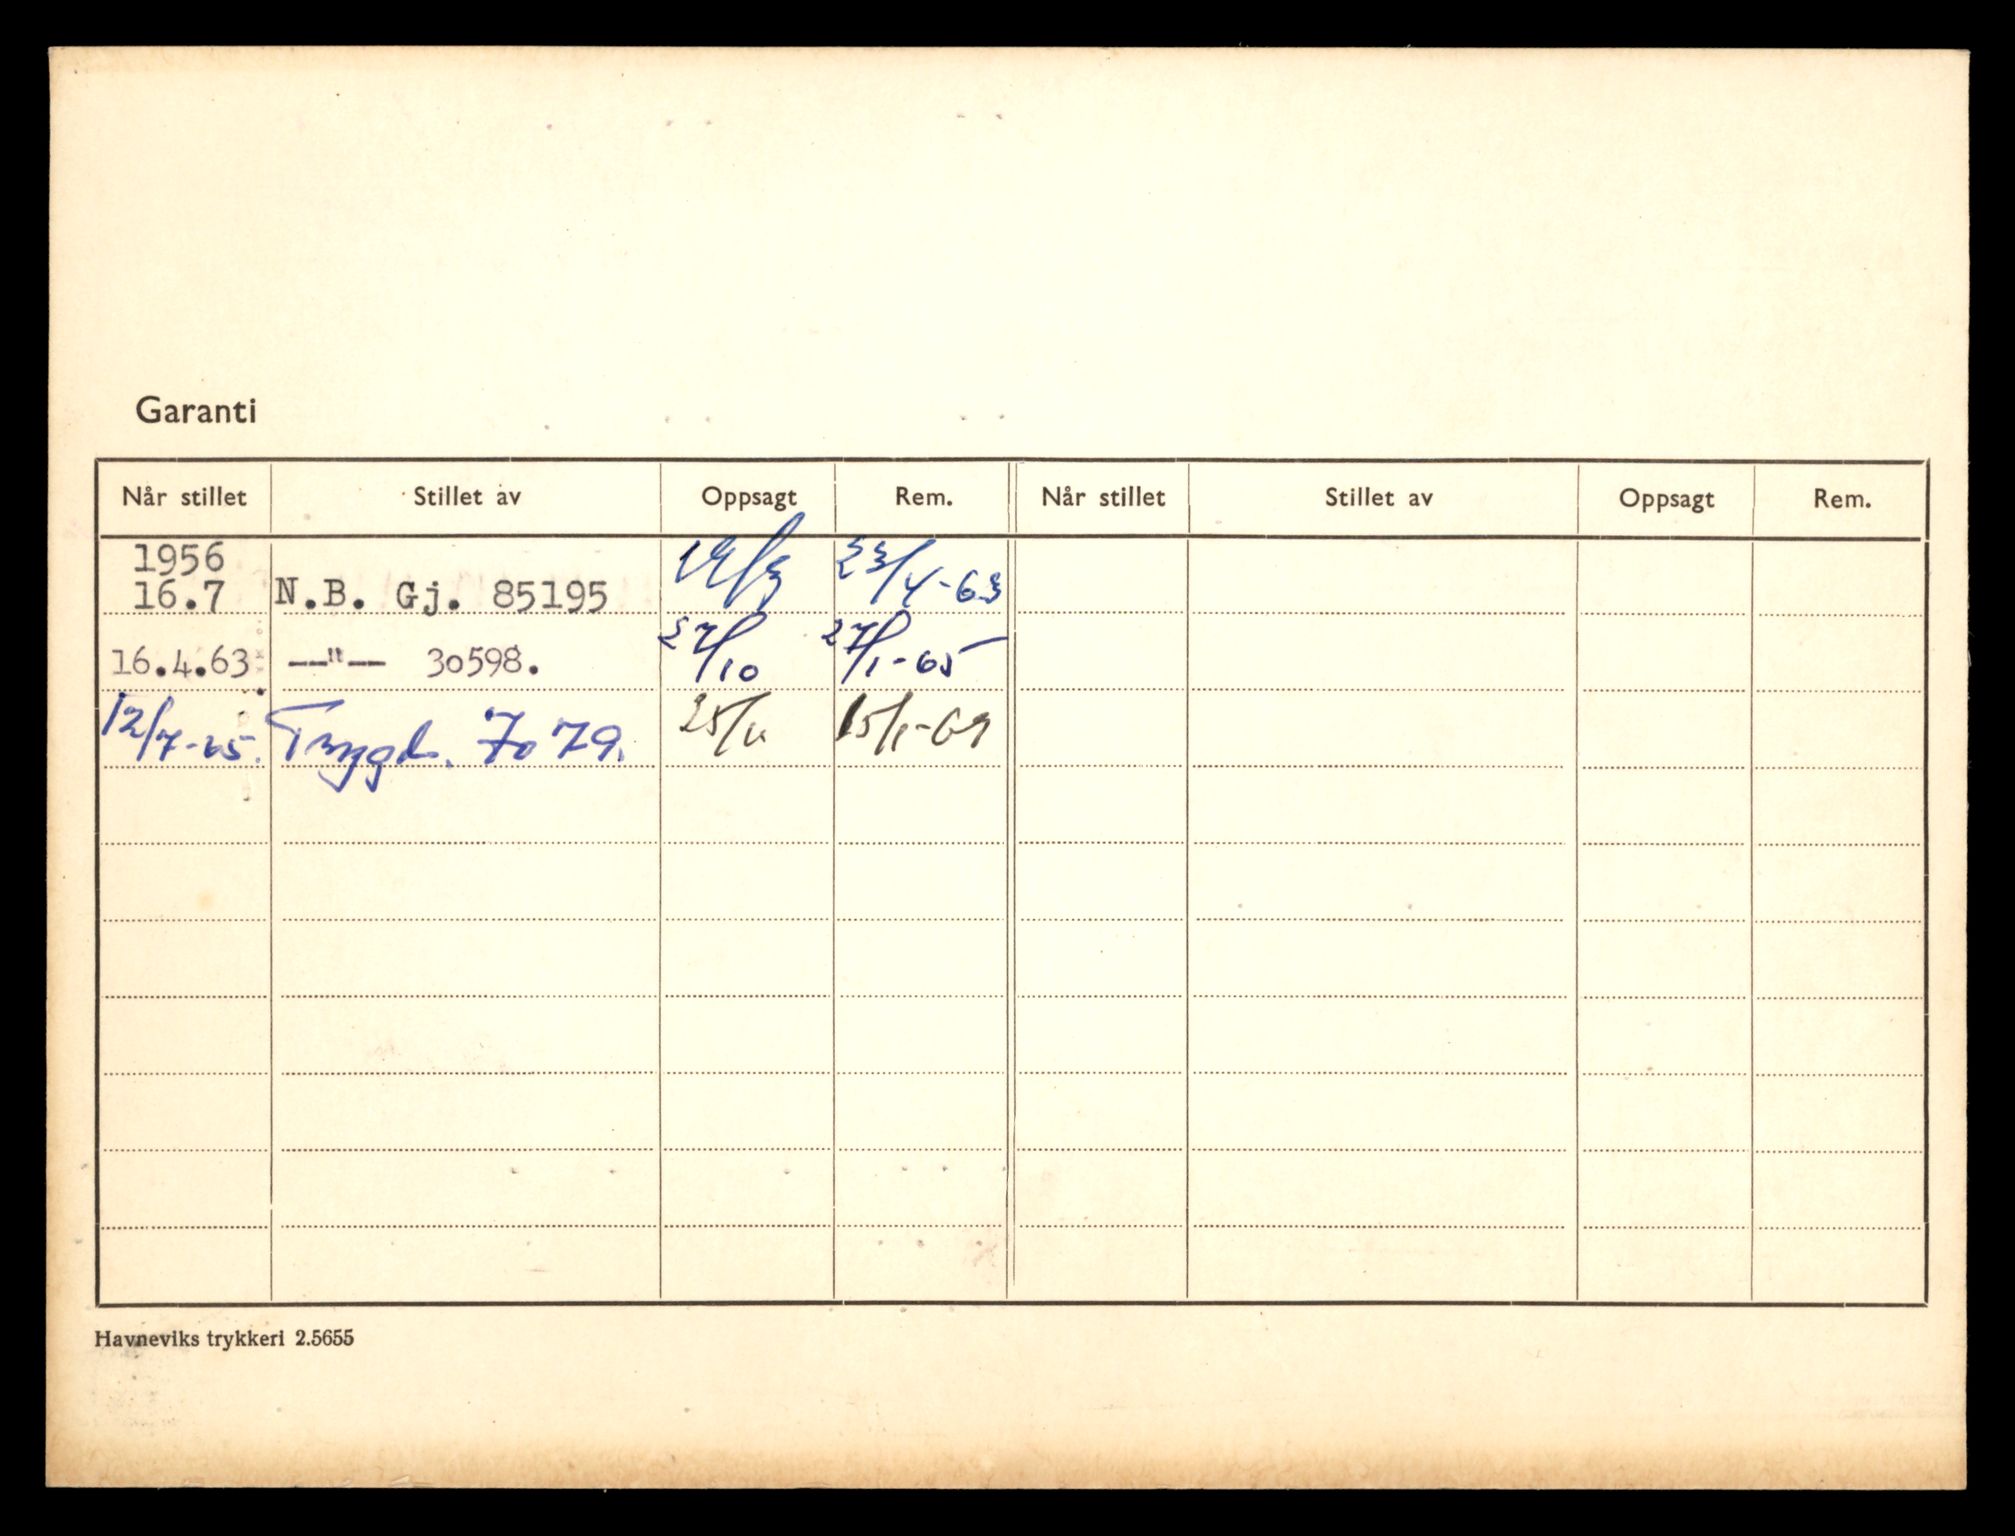 Garanti
Når stillet Stillet av Oppsagt Rem. Når stillet Stillet av Oppsagt Rem.
1956
16.7 N.B. Gj. 85195 19/3 23/4-63
16.4.63 —"— 30598. 27/10 27/1-65
12/7-65. Trygd. 7079. 25/11 15/1-69
Havneviks trykkeri 2.5655